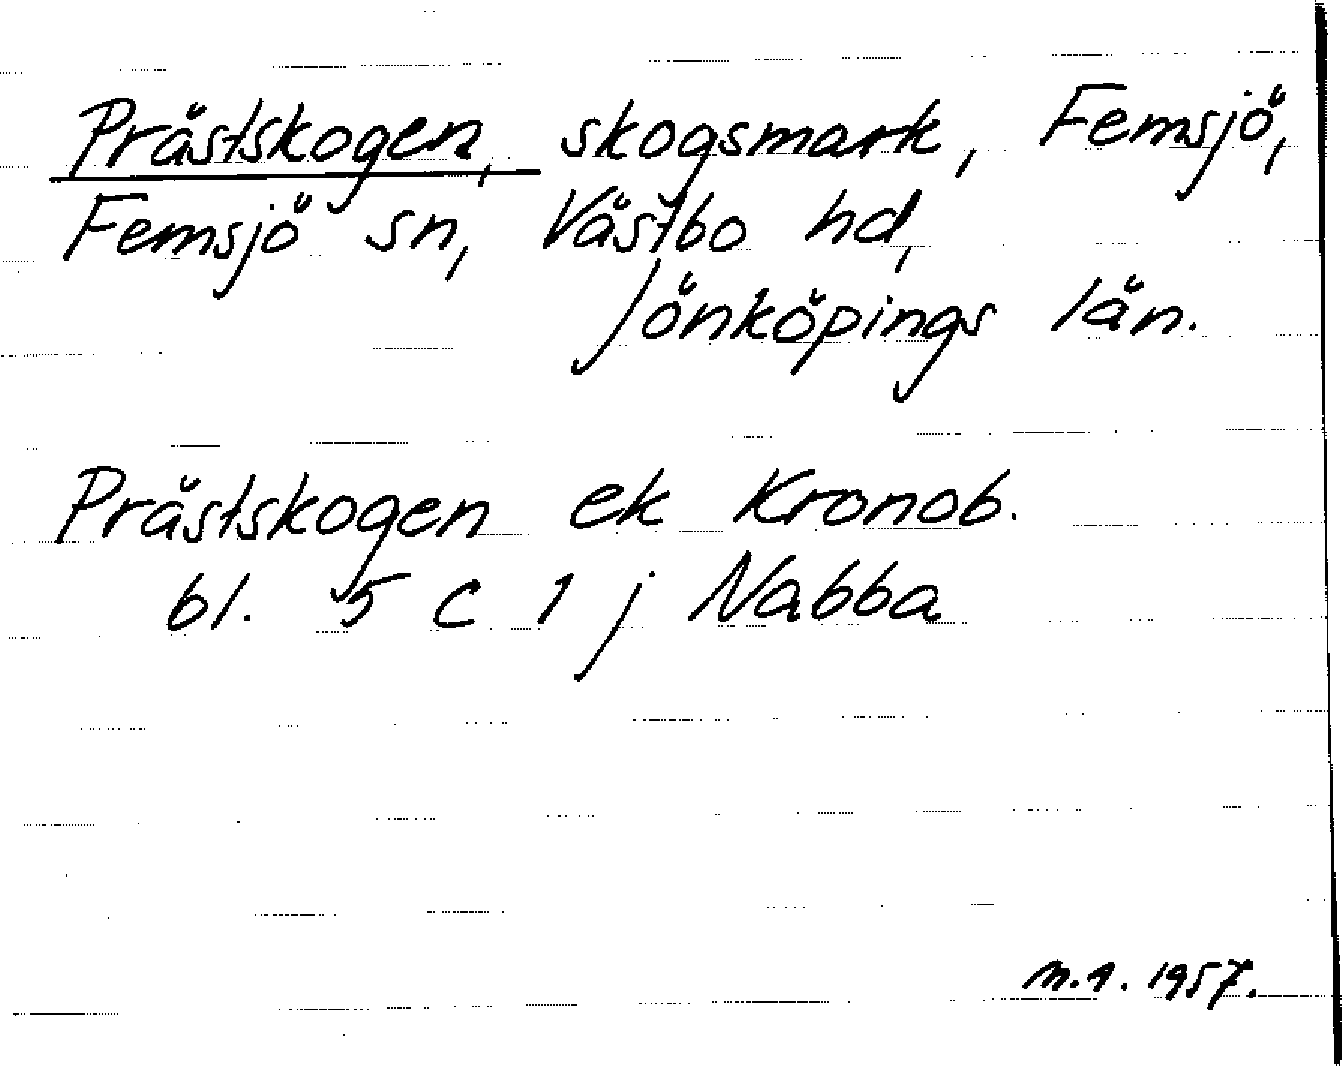 Prästskogen, skogsmark, Femsjö,
Femsjö sn, Västbo hd,
Jönköpings län.
Prästskogen ek Kronob.
bl. 5 C 1 j Nabba
M.A. 1957.